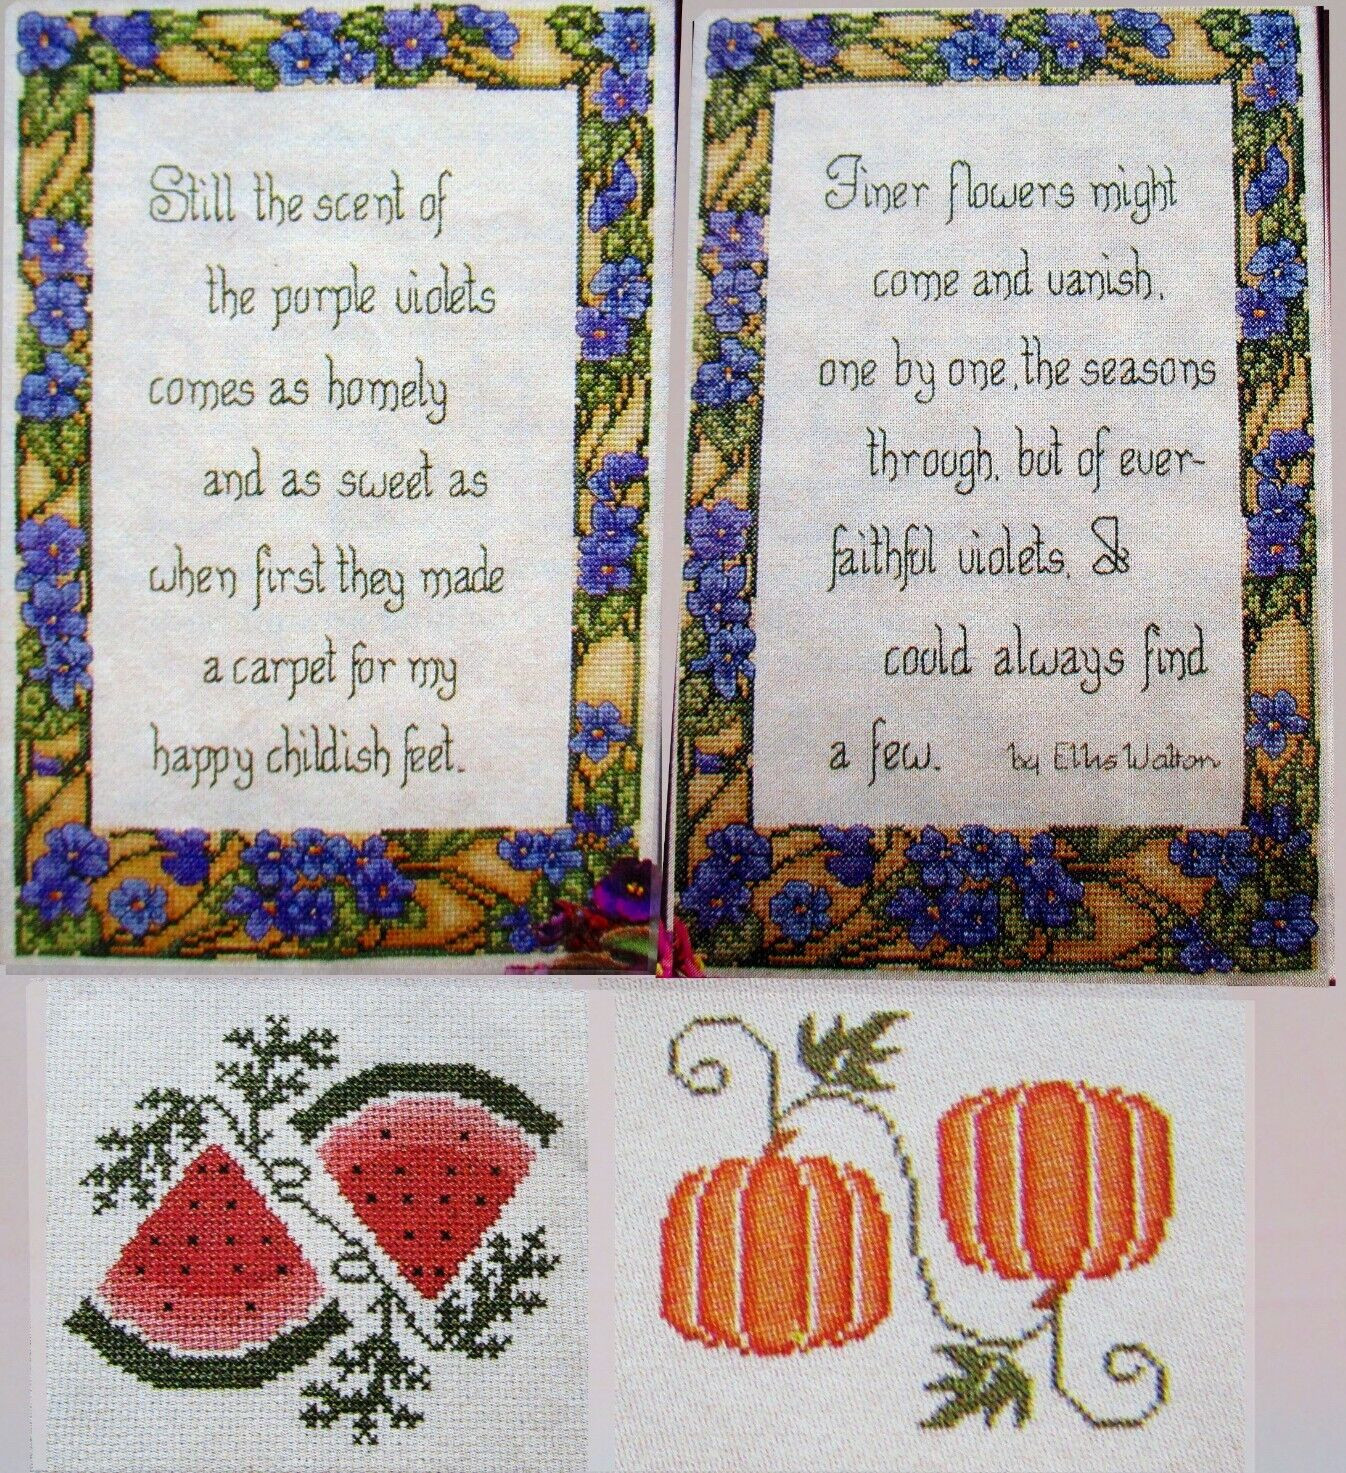 Still the scent of
the purple violets
comes as homely
and as sweet as
when first they made
a carpet for my
happy childish feet.
Finer flowers might
come and vanish,
one by one, the seasons
through, but of ever-
faithful violets, I
could always find
a few. by Ellis Walton